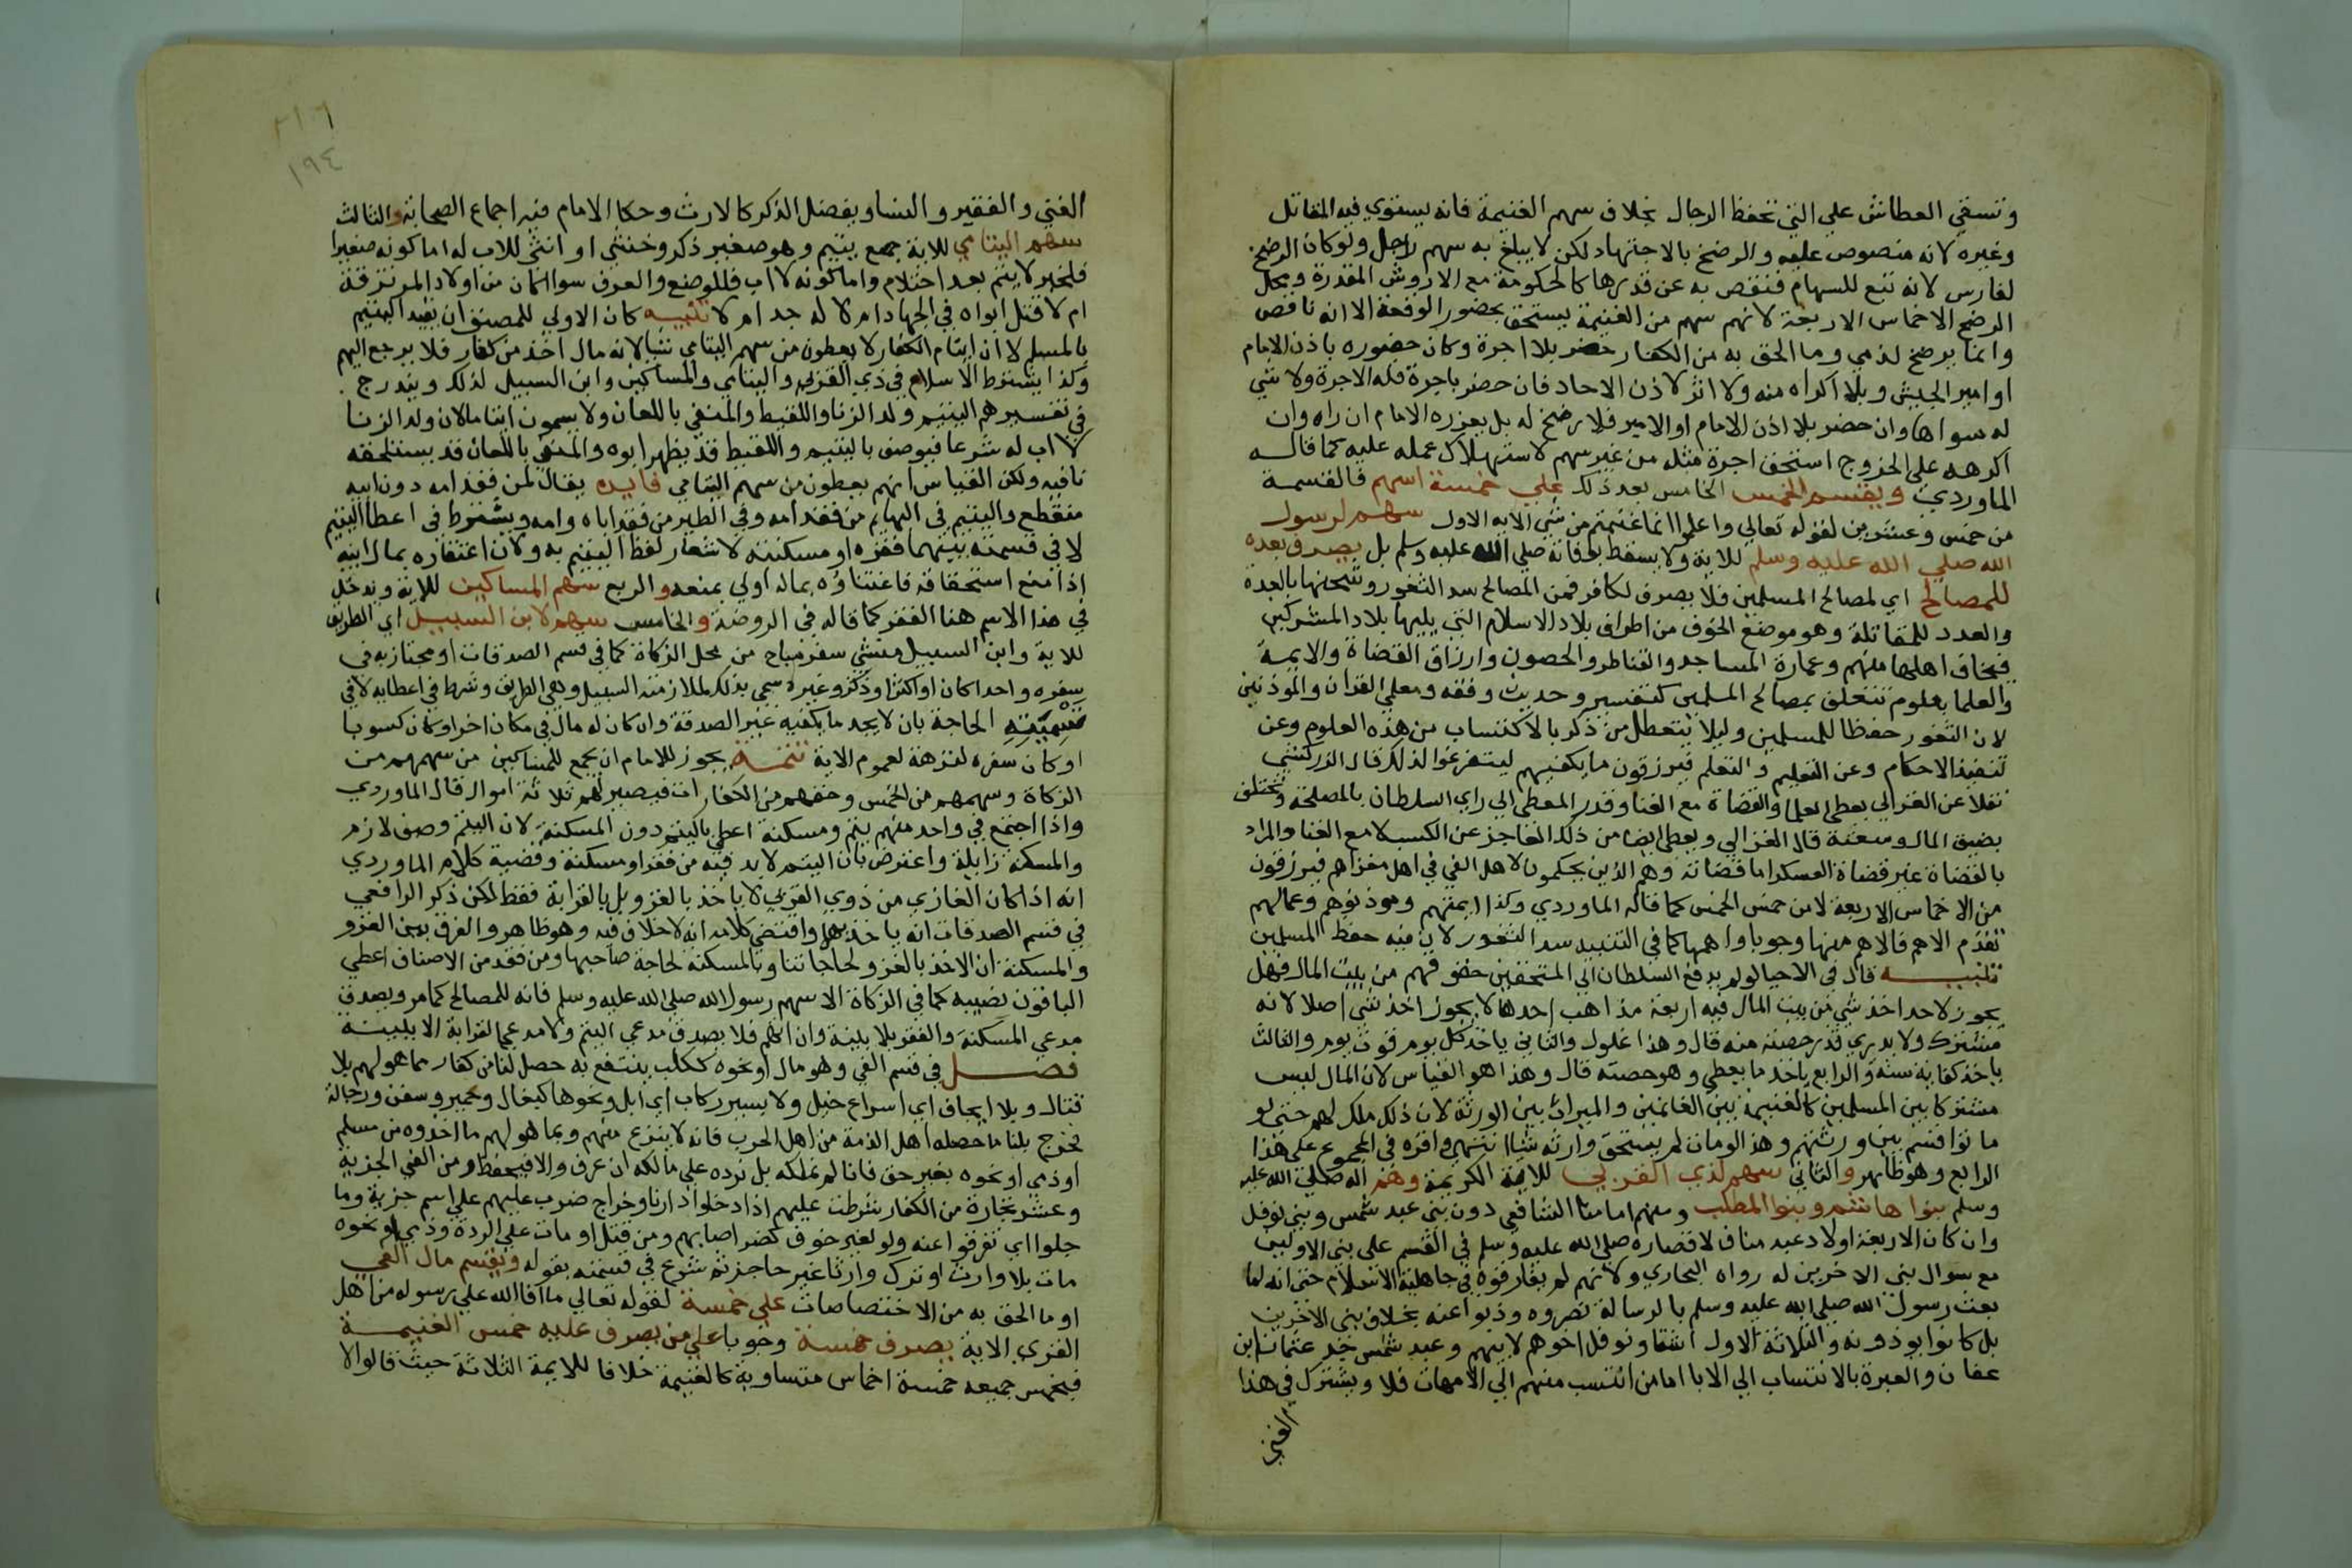 وتسقي العطاش علي التي تحفظ الرجال بخلاف سهم الغنيمة فانه يستوي فيه المقاتل
وغيره لانه منصوص عليه والرضخ بالاجتهاد لكن لا يبلغ به سهم راجل ولو كان الرضخ
لفارس لانه تبع للسهام فنقص به عن قدرها كالحكومة مع الاروش المقدرة ومحل
الرضخ الاخماس الاربعة لانهم سهم من الغنيمة يستحق بحضور الوقعة الا انه ناقص
وانما يرضخ لذمي وما الحق به من الكفار حضر بلا اجرة وكان حضوره باذن الامام
او امير الجيش وبلا اكراه منه ولا اثر لاذن الاحاد فان حضر باجرة فله الاجرة ولا شي
له سواها وان حضر بلا اذن الامام او الامير فلا رضخ له بل يعزره الامام ان راه وان
اكرهه علي الخروج استحق اجرة مثله من غير سهم لاستهلاك عمله عليه كما قاله
الماوردي ويقسم الخمس الخامس بعد ذلك علي خمسة اسهم فالقسمة
من خمس وعشرين لقوله تعالي واعلموا انما غنمتم من شي الايه الاول سهم لرسول
الله صلي الله عليه وسلم للاية ولا يسقط بوفاته صلي الله عليه وسلم بل يصرف بعده
للمصالح اي لمصالح المسلمين فلا يصرف لكافر فمن المصالح سد الثغور وشحنها بالعدة
والعدد للمقاتلة وهو موضع الخوف من اطراف بلاد الاسلام التي يليها بلاد المشركين
فيخاف اهلها منهم وعمارة المساجد والقناطر والحصون وارزاق القضاة والايمة
والعلما بعلوم تتعلق بمصالح المسلمين كتفسير وحديث وفقه ومعلمي القران والموذنين
لان الثغور حفظا للمسلمين وليلا يتعطل من ذكر بالاكتساب من هذه العلوم وعن
تنفيذ الاحكام وعن التعليم والتعلم فيرزقون ما يكفيهم ليتفرغوا لذلك قال الزركشي
نقلا عن الغزالي يعطي العلما والقضاة مع الغنا وقدر المعطي الي راي السلطان بالمصلحة ويختلف
بضيق المال وسعته قال الغزالي ويعطي ايضا من ذلك العاجز عن الكسب لا مع الغنا والمراد
بالقضاة غير قضاة العسكر اما قضاته وهم الذين يحكمون لاهل الفي في اهل مغزاهم فيرزقون
من الاخماس الاربعة لا من خمس الخمس كما قاله الماوردي وكذا ايمتهم وموذنوهم وعمالهم
تقدم الاهم فالاهم منها وجوبا واهمها كما في التنبيه سد الثغور لان فيه حفظ المسلمين
تنبيه قال في الاحيا لو لم يدفع السلطان الي المستحقين حقوقهم من بيت المال فهل
يجوز لاحد اخذ شي من بيت المال فيه اربعة مذاهب احدها لا يجوز اخذ شي اصلا لانه
مشترك ولا يدري قدر حصته منه قال وهذا غلول والثاني ياخذ كل يوم قوت يوم والثالث
ياخذ كفاية سنة والرابع ياخذ ما يعطي وهو حصته قال وهذا هو القياس لان المال ليس
مشتركا بين المسلمين كالغنيمة بين الغانمين والميراث بين الورثة لان ذلك ملك لهم حتي لو
ماتوا قسم بين ورثتهم وهذا لو مات لم يستحق وارثه شيا انتهي واقره في المجموع علي هذا
الرابع وهو ظاهر والثاني سهم لذي القربي للاية الكريمة وهم اله صلي الله عليه
وسلم بنوا هاشم وبنوا المطلب ومنهم امامنا الشافعي دون بني عبد شمس وبني نوفل
وان كان الاربعة اولاد عبد مناف لاقتصاره صلي الله عليه وسلم في القسم علي بني الاولين
مع سوال بني الاخرين له رواه البخاري ولانهم لم يفارقوه في جاهلية ولا اسلام حتي انه لما
بعث رسول الله صلي الله عليه وسلم بالرسالة نصروه وذبوا عنه بخلاف بني الاخرين
بل كانوا يوذونه والثلاثة الاول اشقا ونوفل اخوهم لابيهم وعبد شمس جد عثمان ابن
عفان والعبرة بالانتساب الي الابا اما من انتسب منهم الي الامهات فلا ويشترك في هذا
الغني
٢١٦
١٩٤
الغني والفقير والنسا ويفضل الذكر كالارث وحكا الامام فيه اجماع الصحابة والثالث
سهم اليتامي للاية جمع يتيم وهو صغير ذكر وخنثي او انثي للاب له اما كونه صغيرا
فلخبر لا يتم بعد احتلام واما كونه لا اب فللوضع والعرف سوا اكان من اولاد المرتزقة
ام لا قتل ابواه في الجهاد ام لا له جد ام لا تنبيه كان الاولي للمصنف ان يقيد اليتيم
بالمسلم لان ايتام الكفار لا يعطون من سهم اليتامي شيا لانه مال اخذ من كفار فلا يرجع اليهم
وكذا يشترط الاسلام في ذي القربي واليتامي والمساكين وابن السبيل لذلك ويندرج
في تفسيرهم اليتيم ولد الزنا واللقيط والمنفي باللعان ولا يسمون ايتاما لان ولد الزنا
لا اب له شرعا فيوصف باليتيم واللقيط قد يظهر ابوه والمنفي باللعان قد يستلحقه
نافيه ولكن القياس انهم يعطون من سهم اليتامي فايده يقال لمن فقد امه دون ابيه
منقطع واليتيم في البهايم من فقد امه وفي الطير من فقد اباه وامه ويشترط في اعطا اليتيم
لا في قسمته بينهما فقره او مسكنته لاشعار لفظ اليتيم به ولان اغتناه بمال ابيه
اذا منع استحقاقه فاغتناوه بماله اولي بمنعه والربع سهم المساكين للاية ويدخل
في هذا الاسم هنا الفقر كما قاله في الروضة والخامس سهم لابن السبيل اي الطريق
للاية وابن السبيل منشي سفر مباح من محل الزكاة كما في قسم الصدقات او مجتاز به في
سفره واحدا كان او اكثر ذكرا وغيره سمي بذلك لملازمته السبيل وهي الطريق وشرط في اعطايه لا في
تسميته الحاجة بان لا يجد ما يكفيه غير الصدقة وان كان له مال في مكان اخر او كان كسوبا
او كان سفره لنزهة لعموم الاية تتمة يجوز للامام ان يجمع للمساكين من سهمهم من
الزكاة وسهمهم من الخمس وحقهم من الكفارات فيصير لهم ثلاثة اموال قال الماوردي
واذا اجتمع في واحد منهم يتم ومسكنة اعطي باليتم دون المسكنة لان اليتم وصف لازم
والمسكنة زايلة واعترض بان اليتم لا بد فيه من فقر او مسكنة وقضية كلام الماوردي
انه اذا كان الغازي من ذوي القربي لا ياخذ بالغزو بل بالقرابة فقط لكن ذكر الرافعي
في قسم الصدقات انه ياخذ بهما واقتضي كلامه انه لا خلاف فيه وهو ظاهر والفرق بين الغزو
والمسكنة ان الاخذ بالغزو لحاجاتنا وبالمسكنة لحاجة صاحبها ومن فقد من الاصناف اعطي
الباقون نصيبه كما في الزكاة الا سهم رسول الله صلي الله عليه وسلم فانه للمصالح كما مر ويصدق
مدعي المسكنة والفقر بلا بينة وان اتهم فلا يصدق مدعي اليتم ولا مدعي القرابة الا ببينة
فصل في قسم الفي وهو مال او نحوه ككلب ينتفع به حصل لنا من كفار مما هو لهم بلا
قتال وبلا ايجاف اي اسراع خيل ولا سير ركاب اي ابل ونحوها كبغال وحمير وسفن ورجالة
فخرج بلنا ما حصله اهل الذمة من اهل الحرب فانه لا ينزع منهم وبما هو لهم ما اخذوه من مسلم
او ذمي او نحوه بغير حق فانا لم نملكه بل نرده علي مالكه ان عرف والا فيحفظ ومن الفي الجزية
وعشر تجارة من الكفار شرطت عليهم اذا دخلوا دارنا وخراج ضرب عليهم علي اسم جزية وما
جلوا اي تفرقوا عنه ولو لغير خوف كضر اصابهم ومن قتل او مات علي الردة وذمي او نحوه
مات بلا وارث او ترك وارثا غير حاجز ثم شرع في قسمته بقوله ويقسم مال الفي
او ما الحق به من الاختصاصات علي خمسة لقوله تعالي ما افا الله علي رسوله من اهل
القري الاية يصرف خمسة وجوبا علي من يصرف عليه خمس الغنيمة
فيخمس جميعه خمسة اخماس متساوية كالغنيمة خلافا للايمة الثلاثة حيث قالوا لا